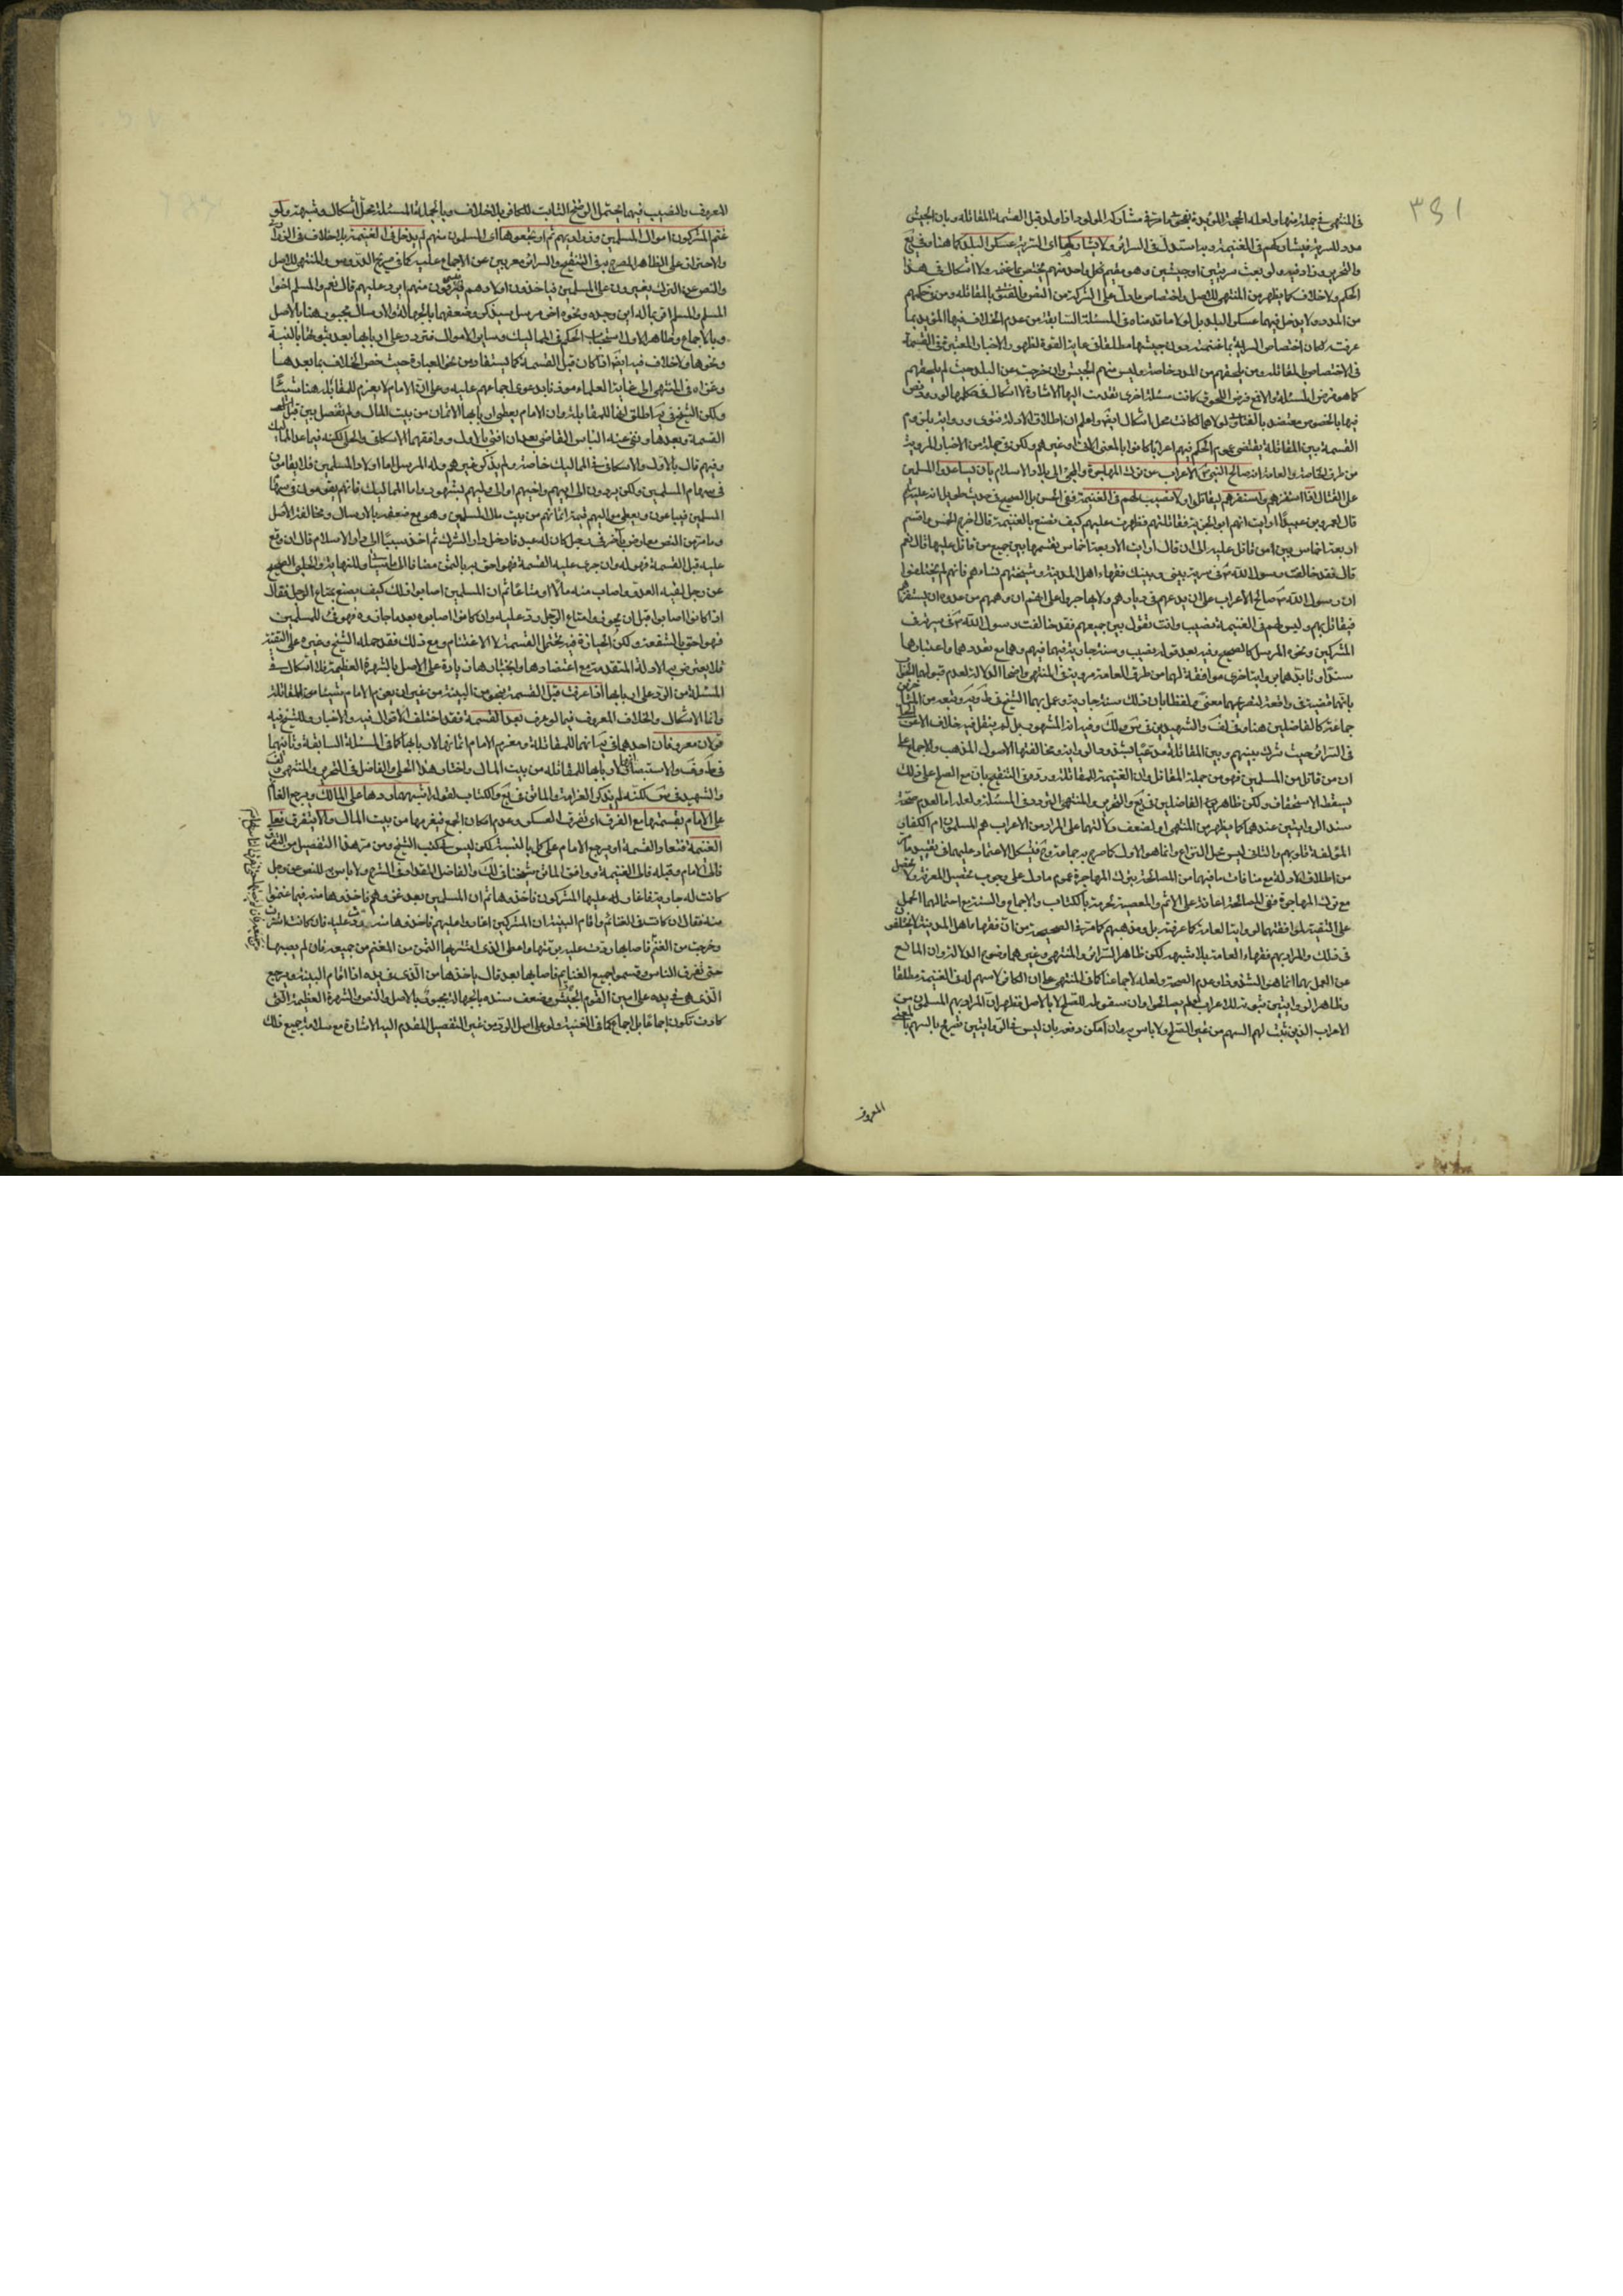 ٣٩١
في المنتهى في جملة منها ولعله الحجة المؤيدة بفحوى ما مر في مشاركة المولود اذا ولد قبل القسمة للمقاتلة وبان الجيش
مدد للسرية فيشاركهم في الغنيمة وبه استدل في السرائر ولا يشاركها اى السرية عسكر البلد كما هنا وفي يع
والتحرير ود وفيه ولو بعث سريتين او جيشين وهو مقيم فكل واحد منهم يختص بما غنمه ولا اشكال في هذا
الحكم ولا خلاف كما يظهر من المنتهى للاصل واختصاص ما دل على الشركة من النص والفتوى بالمقاتلة ومن في حكمهم
من المدد ولا يدخل فيهما عسكر البلد بل لولا ما قدمناه في المسئلة السابقة من عدم الخلاف فيها المؤيد بما
عرفته لكان اختصاص السرية بما غنمته دون جيشها مطلقا في غاية القوة لظهور الاخبار المعتبرة في القسمة
في الاختصاص بالمقاتلة ومن يلحقهم من المدد خاصة وليس منهم الجيش وان خرجت عن البلد حيث لم يلحقهم
كما هو فرض المسئلة والا فمع فرض اللحوق كانت مسئلة اخرى تقدمت اليها الاشارة لا اشكال في حكمها لورود نص
فيها بالخصوص معتضد بالفتاوى لولاهما لكانت محل اشكال ايضا واعلم ان اطلاق الادلة فتوى ورواية بلزوم
القسمة بين المقاتلة يقتضى عموم الحكم فيهم اعرابا كانوا بالمعنى الآت او غيرهم ولكن في جملة من الاخبار المروية
من طرق الخاصة والعامة انه صالح النبي ص الاعراب عن ترك المهاجرة والمجئ الى بلاد الاسلام بان يساعدوا المسلمين
على القتال اذا استنفرهم واستنفرهم ليقاتلوا ولا نصيب لهم في الغنيمة ففي الحسن بل الصحيح في حديث طويل انه عليه السلام
قال لعمرو بن عبيد أ ارايت انهم ابوا الجزية فقاتلتهم فظهرت عليهم كيف تصنع بالغنيمة قال اخرج الخمس واقسم
اربعة اخماس بين من قاتل عليه الى ان قال ارايت الاربعة اخماس تقسمها بين جميع من قاتل عليها قال نعم
قال فقد خالفت رسول الله ص في سيرته بيني وبينك فقهاء اهل المدينة ومشيختهم نسئلهم فانهم لم يختلفوا
ان رسول الله ص صالح الاعراب على ان يدعهم في ديارهم ولا يهاجروا على انه ان دهمهم من عدوه ان يستنفرهم
فيقاتل بهم وليس لهم في الغنيمة نصيب وانت تقول بين جميعهم فقد خالفت رسول الله ص في سيرته في
المشركين ونحوه المرسل كالصحيح وفيه بعد قوله نصيب وسنته جارية فيهم وفي غيرهم وهما مع تعددهما واعتبارهما
جماعة كالفاضلين هنا وفي لف والشهيدين في س ولك وفيه انه المشهور بل لم ينقل فيه خلاف الا عن
في السرائر حيث شرك بينهم وبين المقاتلة مدعيا شذوذ الرواية ومخالفتها الاصول المذهب والاجماع على
ان من قاتل من المسلمين فهو من جملة المقاتلة وان الغنيمة للمقاتلة ورد في التنقيح بان مع الصلح على ذلك
يسقط الاستحقاق ولكن ظاهر الفاضلين في يع والتحرير والمنتهى التردد في المسئلة ولعله اما لعدم صحة
سند الروايتين عندهما كما يظهر من المنتهى او لضعف دلالتهما على المراد من الاعراب هم المسلمون ام الكفار
المؤلفة قلوبهم والثاني ليس محل النزاع وانما هو الاول كما صرح به جماعة وح فيشكل الاعتماد عليهما في تقييد ما مر
من اطلاق الادلة مع منافات ما فيهما من المصالحة بترك المهاجرة عموم ما دل على وجوب تحصيل المعرفة
مع ترك المهاجرة ففي المصالحة اعانة على الاثم والمعصية المحرمة بالكتاب والاجماع والسنة مع احتمالهما الحمل
على التقية لموافقتهما لرواية العامة كما عرفته بل ومذهبهم كما مر في الصحيحة من ان فقهاء اهل المدينة لا يختلفو
في ذلك والمراد بهم فقهاء العامة بلا شبهة لكن ظاهر السرائر والمنتهى وغيرهما وضوح الدلالة وان المانع
عن العمل بهما انما هو الشذوذ او عدم الصحة ولعله لاجماعنا كما في المنتهى على ان الكافر لا سهم له في الغنيمة مطلقا
وظاهر الروايتين ثبوته للاعراب لو لم يصالحوا وان سقوطه للصلح لا بالاصل فيظهر ان المراد بهم المسلمون من
الاعراب الذين ثبت لهم السهم من غير الصلح ولا باس به وان امكن دفعه بان ليس في الروايتين تصريح بالسهم بالمعنى
المعروف
المعروف والنصيب فيهما يحتمل الرضخ الثابت للكافر بلا خلاف وبالجملة المسئلة محل اشكال وشبهة ولو
غنم المشركون اموال المسلمين وذراريهم ثم ارتجعوها اى المسلمون منهم لم يدخل في الغنيمة بلا خلاف في الذراري
والاحرار على الظاهر المصرح به في التنقيح والسرائر معربين عن الاجماع عليه كما في صريح الدروس والمنتهى للاصل
والنص عن الترك يغيرون على المسلمين فياخذون اولادهم فيسرقون منهم ايرد عليهم قال نعم والمسلم اخو
المسلم والمسلم احق بماله اين وجده ونحوه اخر مرسل سيذكر وضعفهما بالجهالة والارسال مجبور هنا بالاصل
وبالاجماع وظاهر الاول انسحاب الحكم في المماليك وساير الاموال فترد على اربابها بعد ثبوتها بالبينة
ونحوها ولا خلاف فيه ايضا اذا كان قبل القسمة كما يستفاد من نحو العبارة حيث خص الخلاف بما بعدها
وعزاه في المنتهى الى عامة العلماء مؤذنا بدعوى اجماعهم عليه وعلى ان الامام لا يغرم للمقاتلة هنا شيئا
ولكن الشيخ في ية اطلق انها للمقاتلة وان الامام يعطى اربابها الاثمان من بيت المال ولم يفصل بين قبل
القسمة وبعدها ونفى عنه الباس القاضى بعد ان افتى بالاول ووافقهما الاسكافى والحلبى لكنه فيما عدا المماليك
وفيهم قال بالاول والاسكافى في المماليك خاصة ولم يذكر غيرهم وله المرسل اما اولاد المسلمين فلا يقامون
في سهام المسلمين ولكن يردون الى ابيهم واخيهم او الى وليهم بشهود واما المماليك فانهم يقومون في سهام
المسلمين فيباعون ويعطى مواليهم قيمة اثمانهم من بيت مال المسلمين وهو مع ضعفه بالارسال ومخالفة الاصل
وما مر من النص معارض بآخر في رجل كان له عبد فادخل دار الشرك ثم اخذ سبيا الى دار الاسلام قال ان وقع
عليه قبل القسمة فهو له وان جرى عليه القسمة فهو احق به بالثمن مضافا الى ما ستأتي وللنهاية والحلبي الصحيح
عن رجل لقيه العدو واصاب منه مالا او متاعا ثم ان المسلمين اصابوا ذلك كيف يصنع بمتاع الرجل فقال
اذا كانوا اصابوا قبل ان يحوزوا متاع الرجل رد عليه وان كانوا اصابوه بعد ما حازوه فهو فئ للمسلمين
فهو احق بالشفعة ولكن الحيازة فيه يحتمل القسمة لا الاغتنام ومع ذلك فقد حمله الشيخ وغيره على التقية
فلا يعترض به الادلة المتقدمة مع اعتضادها وانجبارها زيادة على الاصل بالشهرة العظيمة فلا اشكال في
المسئلة من الرد على اربابها اذا عرفت قبل القسمة بنحو من البينة من غير ان يغرم الامام شيئا من المقاتلة
وانما الاشكال والخلاف المعروف فيما لو عرف بعد القسمة فقد اختلف الاقوال فيه والاخبار وللشيخ فيه
قولان معروفان احدهما في ية انها للمقاتلة ويغرم الامام اثمانها لاربابها كما في المسئلة السابقة وثانيهما
في ط وف والاستبصار انها لاربابها وللمقاتلة من بيت المال واختار هذا الحلى والفاضل في التحرير والمنتهى ولف
والشهيد في س لكنه لم يذكر الغرامة والماتن في يع والكتاب لقوله اشبههما ردها على المالك ويرجع الغانم
على الامام بقيمتها مع التفرق اى تفرق العسكر وعدم امكان الجمع فيغرمها من بيت المال والا يتفرق فعلى
الغنيمة فتعاد القسمة او يرجع الامام على كل بالنسبة لكن ليس في كتب الشيخ ومن مر هذا التفصيل من التفرق
فالى الامام وقبله فالى الغنيمة ووافق الماتن شيخنا في لك والفاضل المقداد في الشرح ولا باس به للنص عن رجل
كانت له جارية فاغار عليها المشركون فاخذوها ثم ان المسلمين بعد غزوهم فاخذوها منهم فيما غنموا
منهم فقال ان كانت في الغنائم واقام البينة ان المشركين اغاروا عليهم فاخذوها منه ردت عليه فان كانت اشتريت
وخرجت من المغنم فاصابها ردت عليه برمتها واعطى الذى اشتراها الثمن من المغنم من جميعه فان لم يصبها
حتى تفرق الناس وقسموا جميع الغنايم فاصابها بعد قال ياخذها من الذى في يده اذا اقام البينة ويرجع
الذى هى في يده على امير الجيش وضعف سنده بالجهالة مجبور بالاصل والنص والشهرة العظيمة التى
كادت تكون اجماعا بل اجماع كما في الغنية ولو على اصل الرد من غير التفصيل المقدم اليه الاشارة مع سلامة جميع ذلك